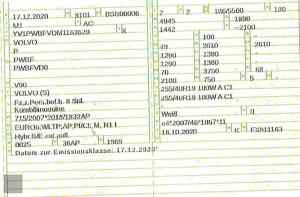 17.12.2020 9101 BSB00006
M1 AC
YV1PWBFVDM1163629 X
VOLVO
P
PWBF
PWBFVD0
V90
VOLVO (S)
Fz.z.Pers.bef.b. 8 Spl.
Kombilimousine
715/2007*2018/1832AP
EURO6;WLTP;AP;PI/CI; M, N1 I
Hybr.B/E ext.aufl.
0025 36AP 1969
Datum zur Emissionsklasse: 17.12.2020
2 2 186/5500 180
4945 1890
1442 -2100
100
2610 2610
1290 1290
1380 1380
70 3750 68
2100 750 5
255/40R19 100W A C1
255/40R19 100W A C1
Weiß 0
e4*2007/46*1067*11
16.10.2020 K